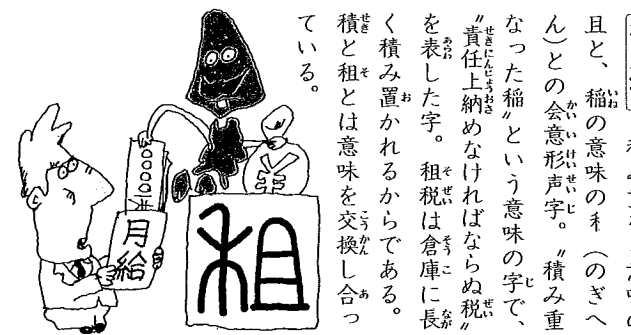 且と、稲の意味の禾(のぎへ
ん)との会意形声字。〝積み重
なった稲〟という意味の字で、
〝責任上納めなければならぬ税〟
を表した字。租税は倉庫に長
く積み置かれるからである。
積と租とは意味を交換し合っ
ている。
租
月給
¥